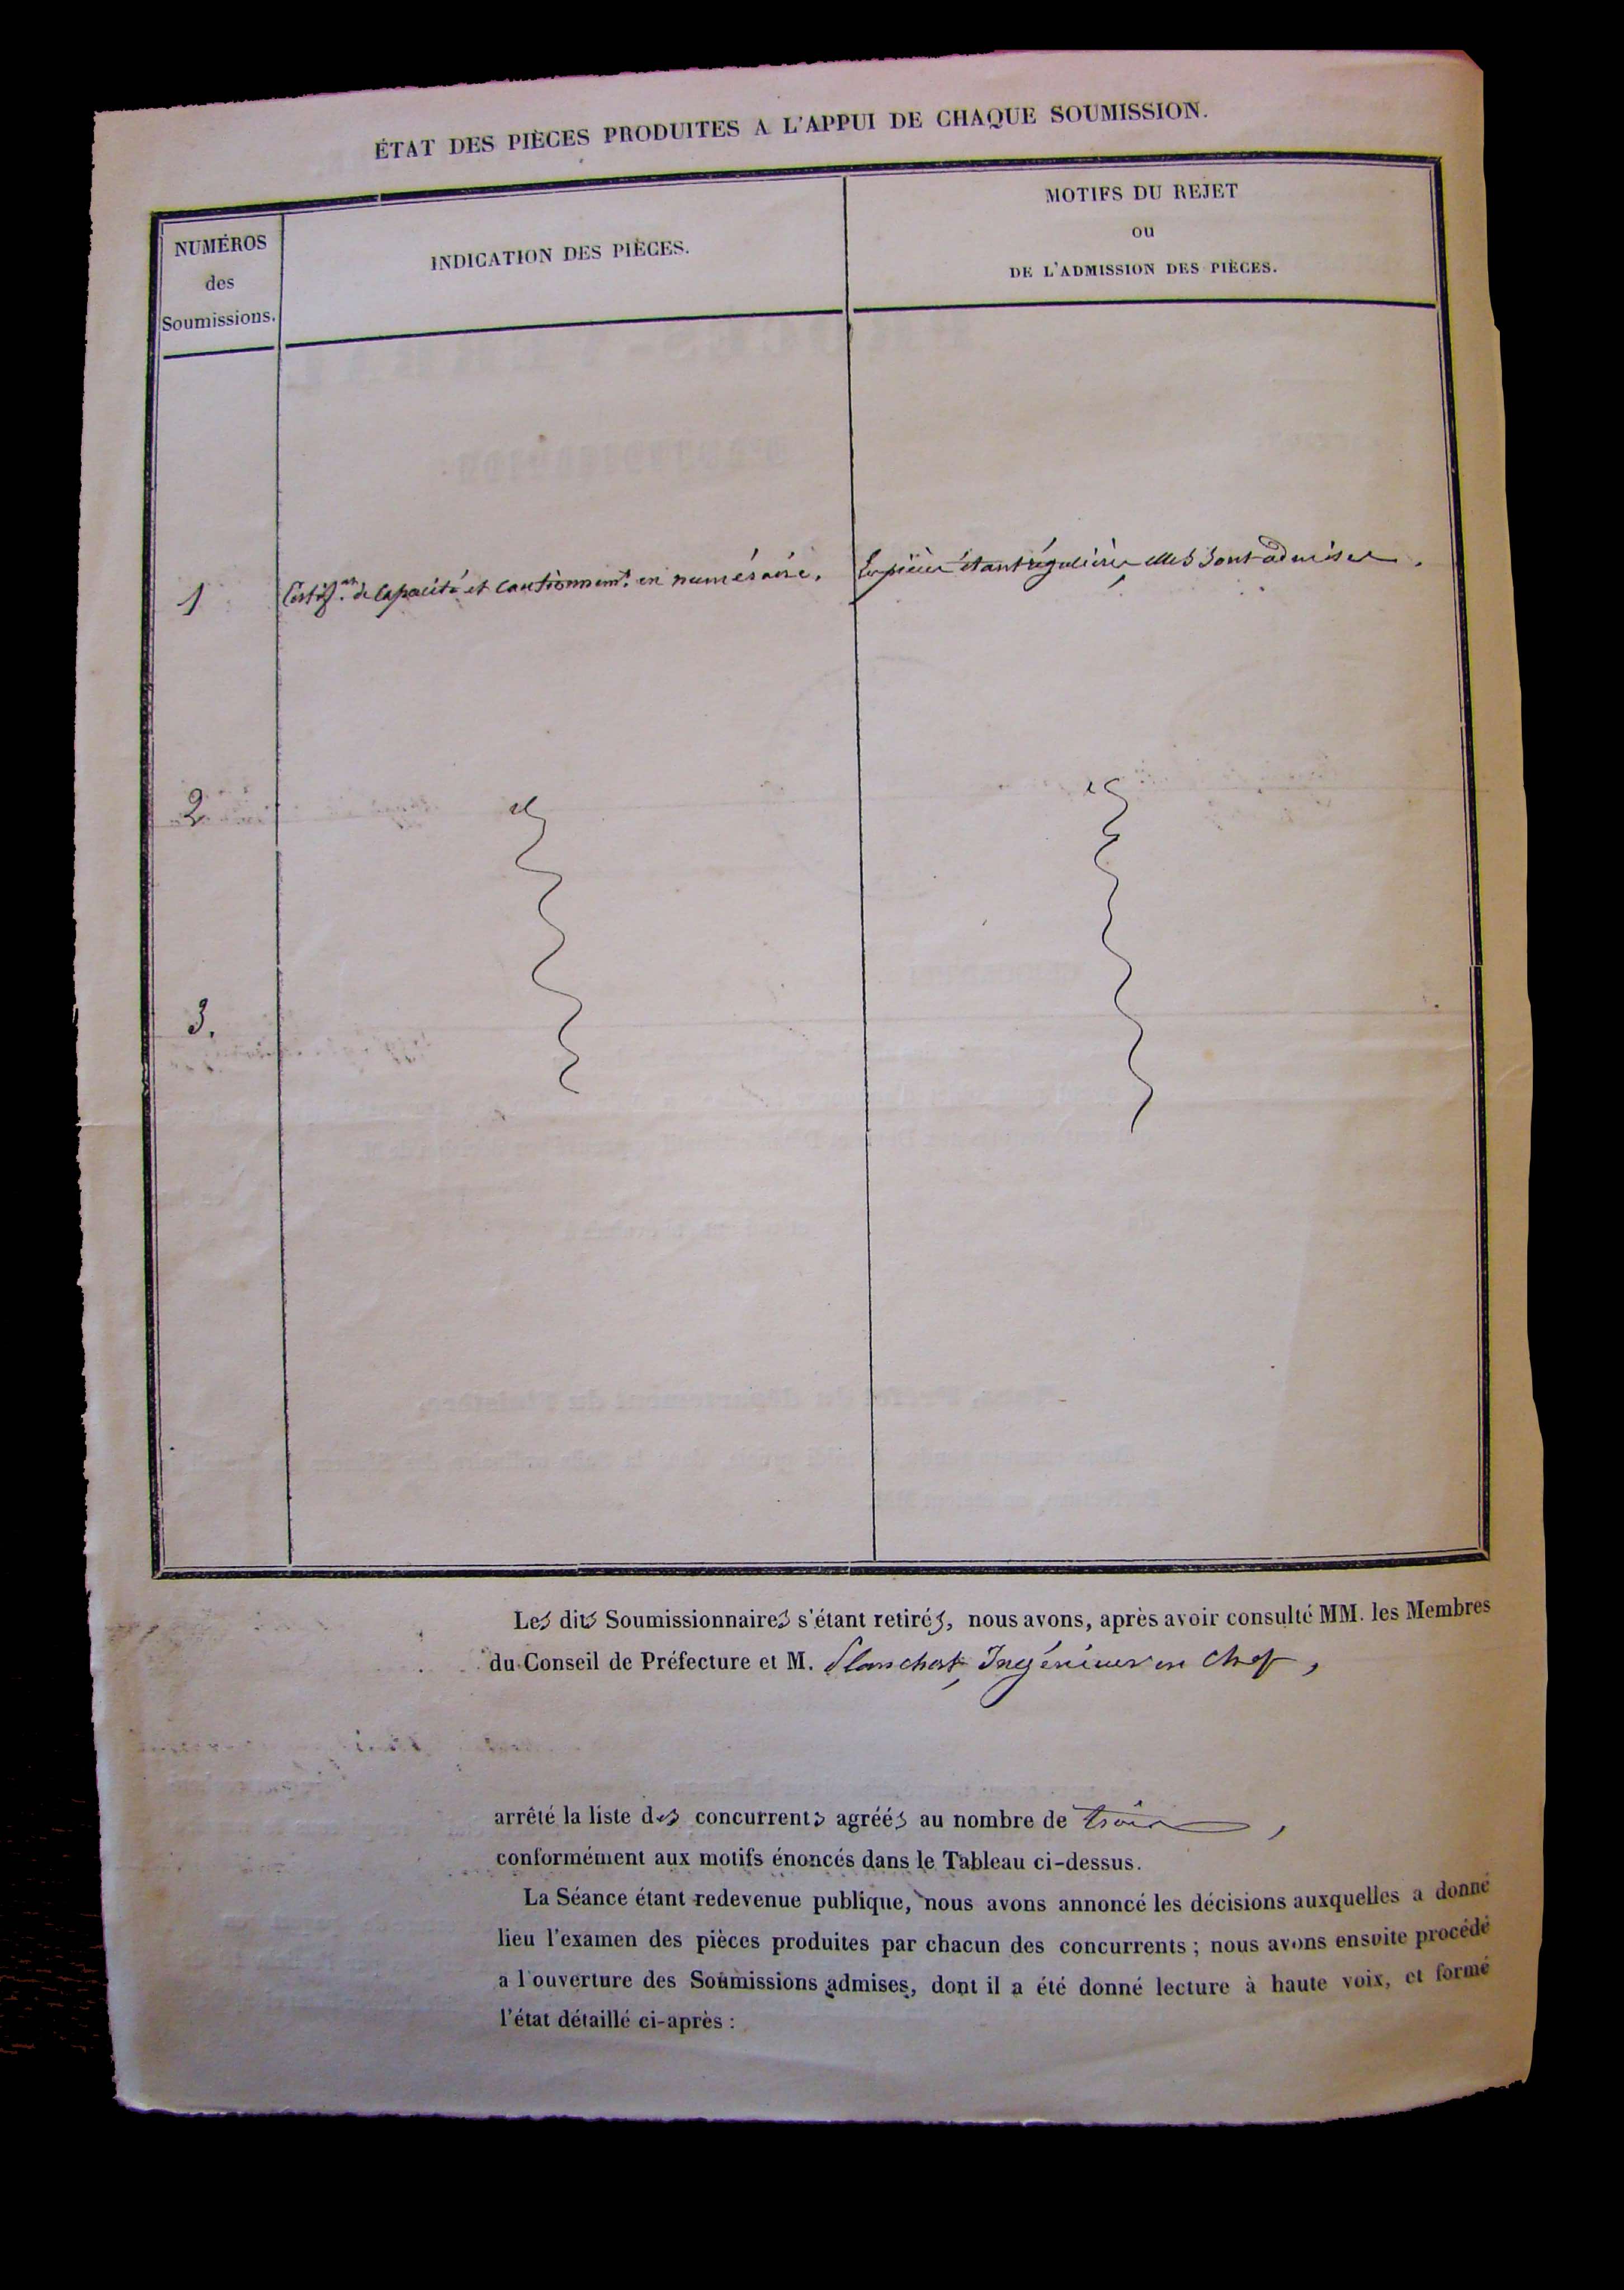 ÉTAT DES PIÈCES PRODUITES A L'APPUI DE CHAQUE SOUMISSION.
NUMÉROS
des
Soumissions.
INDICATION DES PIÈCES.
MOTIFS DU REJET
ou
DE L'ADMISSION DES PIÈCES.
1 Certif.at de capacité et cautionnem.t en numéraire. Les pièces étant régulières, elles sont admises.
2
3.
Les dits Soumissionnaires s'étant retirés, nous avons, après avoir consulté MM. les Membres
du Conseil de Préfecture et M. Planchat, Ingénieur en chef,
arrêté la liste des concurrents agréés au nombre de trois,
conformément aux motifs énoncés dans le Tableau ci-dessus.
La Séance étant redevenue publique, nous avons annoncé les décisions auxquelles a donné
lieu l'examen des pièces produites par chacun des concurrents ; nous avons ensuite procédé
a l'ouverture des Soumissions admises, dont il a été donné lecture à haute voix, et formé
l'état détaillé ci-après :